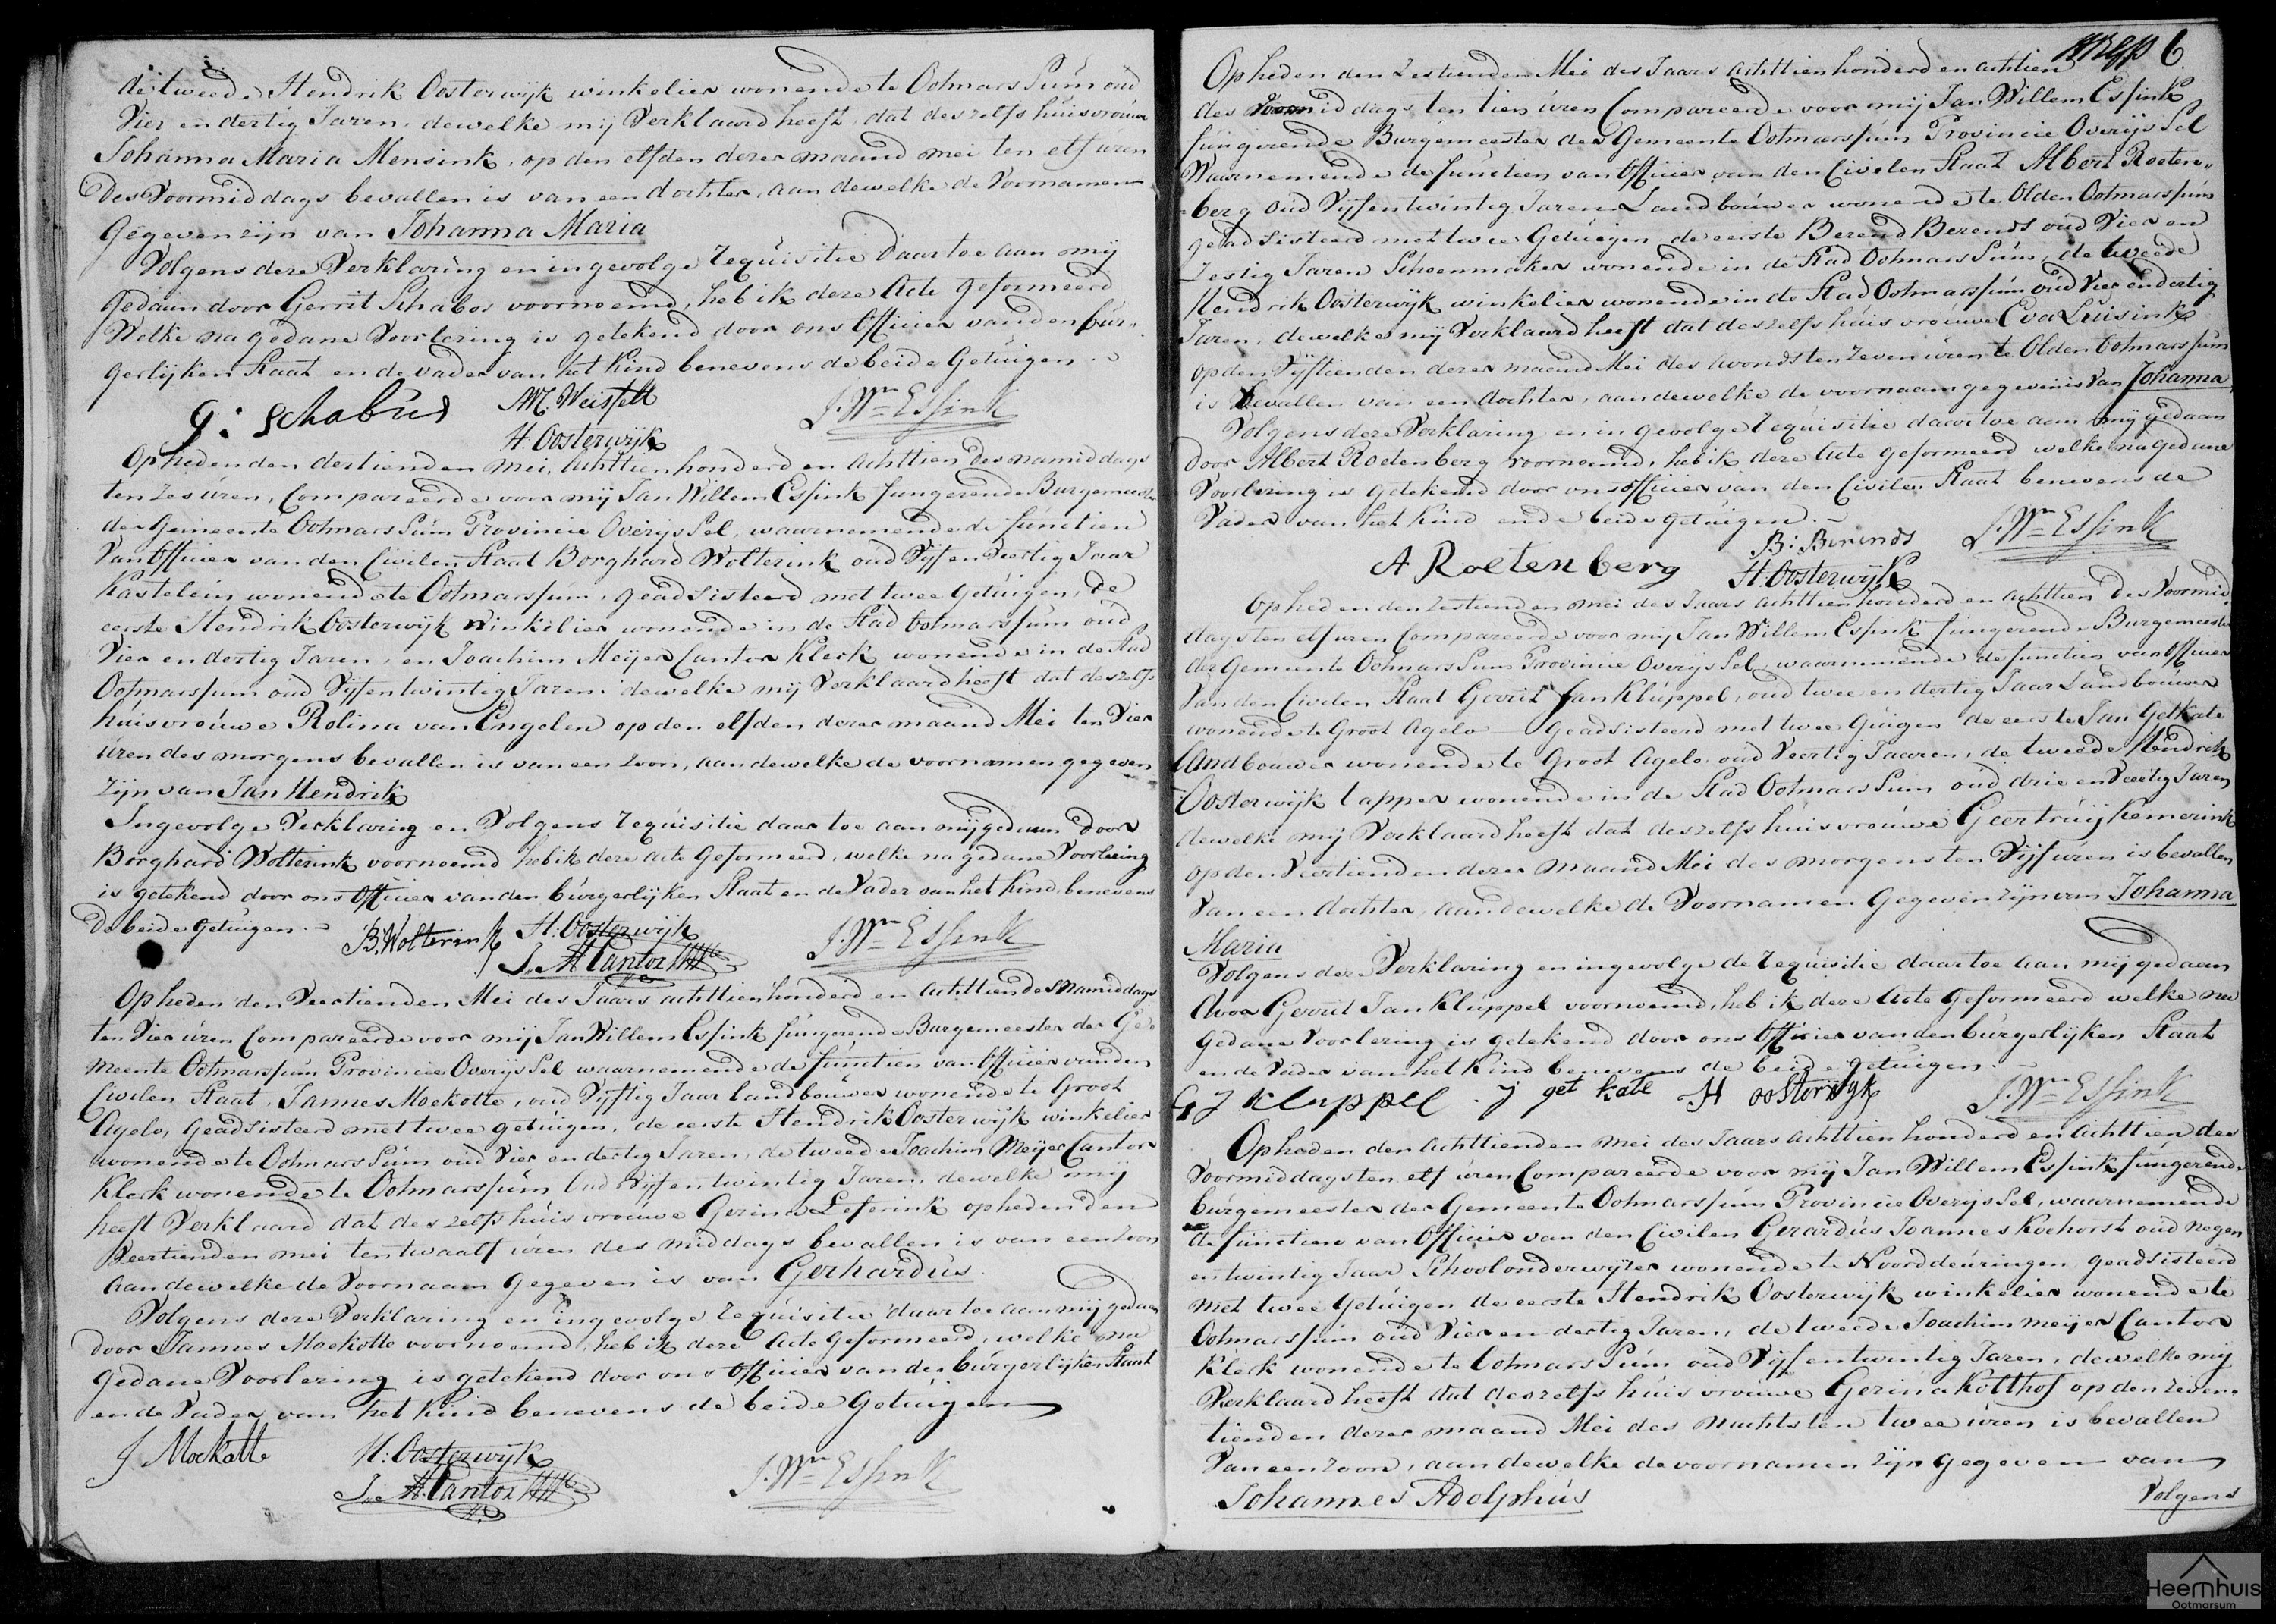 de tweede Hendrik Oosterwijk winkelier wonende te Ootmarssum oud
Vier en dertig Jaren, dewelke mij Verklaard heeft, dat deszelfs huisvrouw
Johanna Maria Mensink, op den elfden dezer maand mei ten elf uren
des Voormiddags bevallen is van een dochter, aan dewelke de Voornamen
Gegeven zijn van Johanna Maria
Volgens deze Verklaring en ingevolge requisitie daartoe aan mij
gedaan door Gerrit Schabos voornoemd, heb ik deze Acte geformeerd
Welke na gedane Voorlezing is getekend door ons Officier van den bur-
gerlijken Staat en de vader van het Kind benevens de beide Getuigen.
G: Schabus
H. Oosterwijk
J. Wm Essink
Op heden den dertienden Mei, achttienhonderd en achttien des namiddags
ten zes uren, Compareerde voor mij Jan Willem Essink fungerende Burgemeester
der Gemeente Ootmarssum Provincie Overijssel, waarnemende de functien
Van Officier van den Civilen Staat Borghard Wolterink oud Vijf en Veertig Jaar
Kastelein wonende te Ootmarssum, geadsisteerd met twee Getuigen, de
eerste Hendrik Oosterwijk Winkelier wonende in de Stad Ootmarssum oud
Vier en dertig Jaren, en Joachim Meijer Cantor Klerk wonende in de Stad
Ootmarssum oud Vijf en twintig Jaren. dewelke mij Verklaard heeft dat deszelfs
huisvrouwe Rolina van Engelen op den elfden dezer maand Mei ten Vier
uren des morgens bevallen is van een Zoon, aan dewelke de voornamen gegeven
zijn van Jan Hendrik
Ingevolge Verklaring en Volgens requisitie daar toe aan mij gedaan door
Borghard Wolterink voornoemd heb ik deze acte Geformeerd, welke na gedane Voorlezing
is getekend door ons Officier van den burgerlijken Staat en de Vader van het Kind, benevens
de beide getuigen.
B. Wolterink
H. Oosterwijk
J. M Cantor
J. Wm Essink
Op heden den Veertienden Mei des Jaars achttienhonderd en achttien des Namiddags
ten Vier uren Compareerde voor mij Jan Willem Essink fungerende Burgemeester der Ge-
meente Ootmarssum Provincie Overijssel waarnemende de functien van Officier van den
Civilen Staat, Jannes Moekotte, oud Vijftig Jaar landbouwer wonende te Groot
Agelo, Geadsisteerd met twee getuigen, de eerste Hendrik Oosterwijk winkelier
wonende te Ootmarssum oud Vier en dertig Jaren, de tweede Joachim Meijer Cantor
Klerk wonende te Ootmarssum Oud Vijf en twintig Jaren, dewelke mij
heeft Verklaard dat deszelfs huisvrouwe Gerina Leferink op heden den
Veertienden mei ten twaalf uren des middags bevallen is van een Zoon
aan dewelke de Voornaam Gegeven is van Gerhardus.
Volgens deze Verklaring en ingevolge requisitie daar toe aan mij gedaan
door Jannes Moekotte voornoemd, heb ik deze Acte Geformeerd, welke na
Gedane Voorlezing is getekend door ons Officier van den burgerlijken Staat
en de Vader van het Kind benevens de beide Getuigen
J Mockotte
H. Oosterwijk
J. M. Cantor
J. Wm Essink
6
Op heden den Zestienden Mei des Jaars achttienhonderd en achtien
des middags ten tien uren Compareerde voor mij Jan Willem Essink
fungerende Burgemeester der Gemeente Ootmarssum Provincie Overijssel
Waarnemende de functien van Officier van den Civilen Staat Albert Roeten-
berg oud Vijf en twintig Jaren Landbouwer wonende te Olden Ootmarssum
geadsisteerd met twee Getuigen de eerste Berend Berends oud Vier en
Zestig Jaren Schoenmaker wonende in de Stad Ootmarssum, de tweede
Hendrik Oosterwijk winkelier wonende in de Stad Ootmarssum oud Vier en dertig
Jaren, dewelke mij Verklaard heeft dat deszelfs huisvrouwe Eva Luisink
op den Vijftienden dezer maand Mei des avonds ten Zeven uren te Olden Ootmarssum
is bevallen van een dochter, aan dewelke de voornaam gegeven is van Johanna
Volgens deze Verklaring en in gevolge requisitie daartoe aan mij gedaan
door Albert Roetenberg voornoemd, heb ik deze Acte geformeerd welke na gedane
Voorlezing is getekend door ons officier van den Civilen Staat benevens de
Vader van het Kind en de beide getuigen.
A Roetenberg
B: Berends
H. Oosterwijk
J. Wm Essink
Op heden den Zestienden mei des Jaars achttienhonderd en achttien des Voormid-
dags ten elf uren Compareerde voor mij Jan Willem Essink fungerende Burgemeester
der Gemeente Ootmarssum Provincie Overijssel, waarnemende de functien van Officier
Van den Civilen Staat Gerrit Jan Kluppel, oud twee en dertig Jaar Landbouwer
wonende te Groot Agelo Geadsisteerd met twee Getuigen de eerste Jan Getkate
Landbouwer wonende te Groot Agelo oud Veertig Jaaren, de tweede Hendrik
Oosterwijk tapper wonende in de Stad Ootmarssum oud drie en Veertig Jaren
dewelke mij Verklaard heeft dat deszelfs huisvrouwe Geertruij Kemerink
op den Veertienden dezer maand Mei des morgens ten Vijf uren is bevallen
Van een dochter, aan dewelke de Voornamen Gegeven zijn van Johanna
Maria
Volgens deze Verklaring en ingevolge de requisitie daartoe aan mij gedaan
door Gerrit Jan Kluppel voornoemd, heb ik deze Acte Geformeerd welke na
gedane Voorlezing is getekend door ons Officier van den burgerlijken Staat
en de Vader van het Kind benevens de beide getuigen.
G J Kluppel
J get kate
H oosterwyk
J. Wm Essink
Op heden den achttienden mei des Jaars achttienhonderd en achttien des
Voormiddags ten elf uren Compareerde voor mij Jan Willem Essink fungerende
burgemeester der Gemeente Ootmarssum Provincie Overijssel, waarnemende
de functien van Officier van den Civilen Gerardus Joannes Koehorst oud negen
en twintig Jaar Schoolonderwijzer wonende te Noorddeuringen geadsisteerd
met twee Getuigen de eerste Hendrik Oosterwijk winkelier wonende te
Ootmarssum oud Vier en dertig Jaren, de tweede Joachim meijer Cantor
Klerk wonende te Ootmarssum oud Vijf en twintig Jaren, dewelke mij
Verklaard heeft dat deszelfs huisvrouwe Gezina Kolthof op den zeven-
tienden dezer maand Mei des Nachts ten twee uren is bevallen
Van een zoon, aan dewelke de voornamen zijn gegeven van
Johannes Adolphus
Volgens
Heemhuis
Ootmarsum